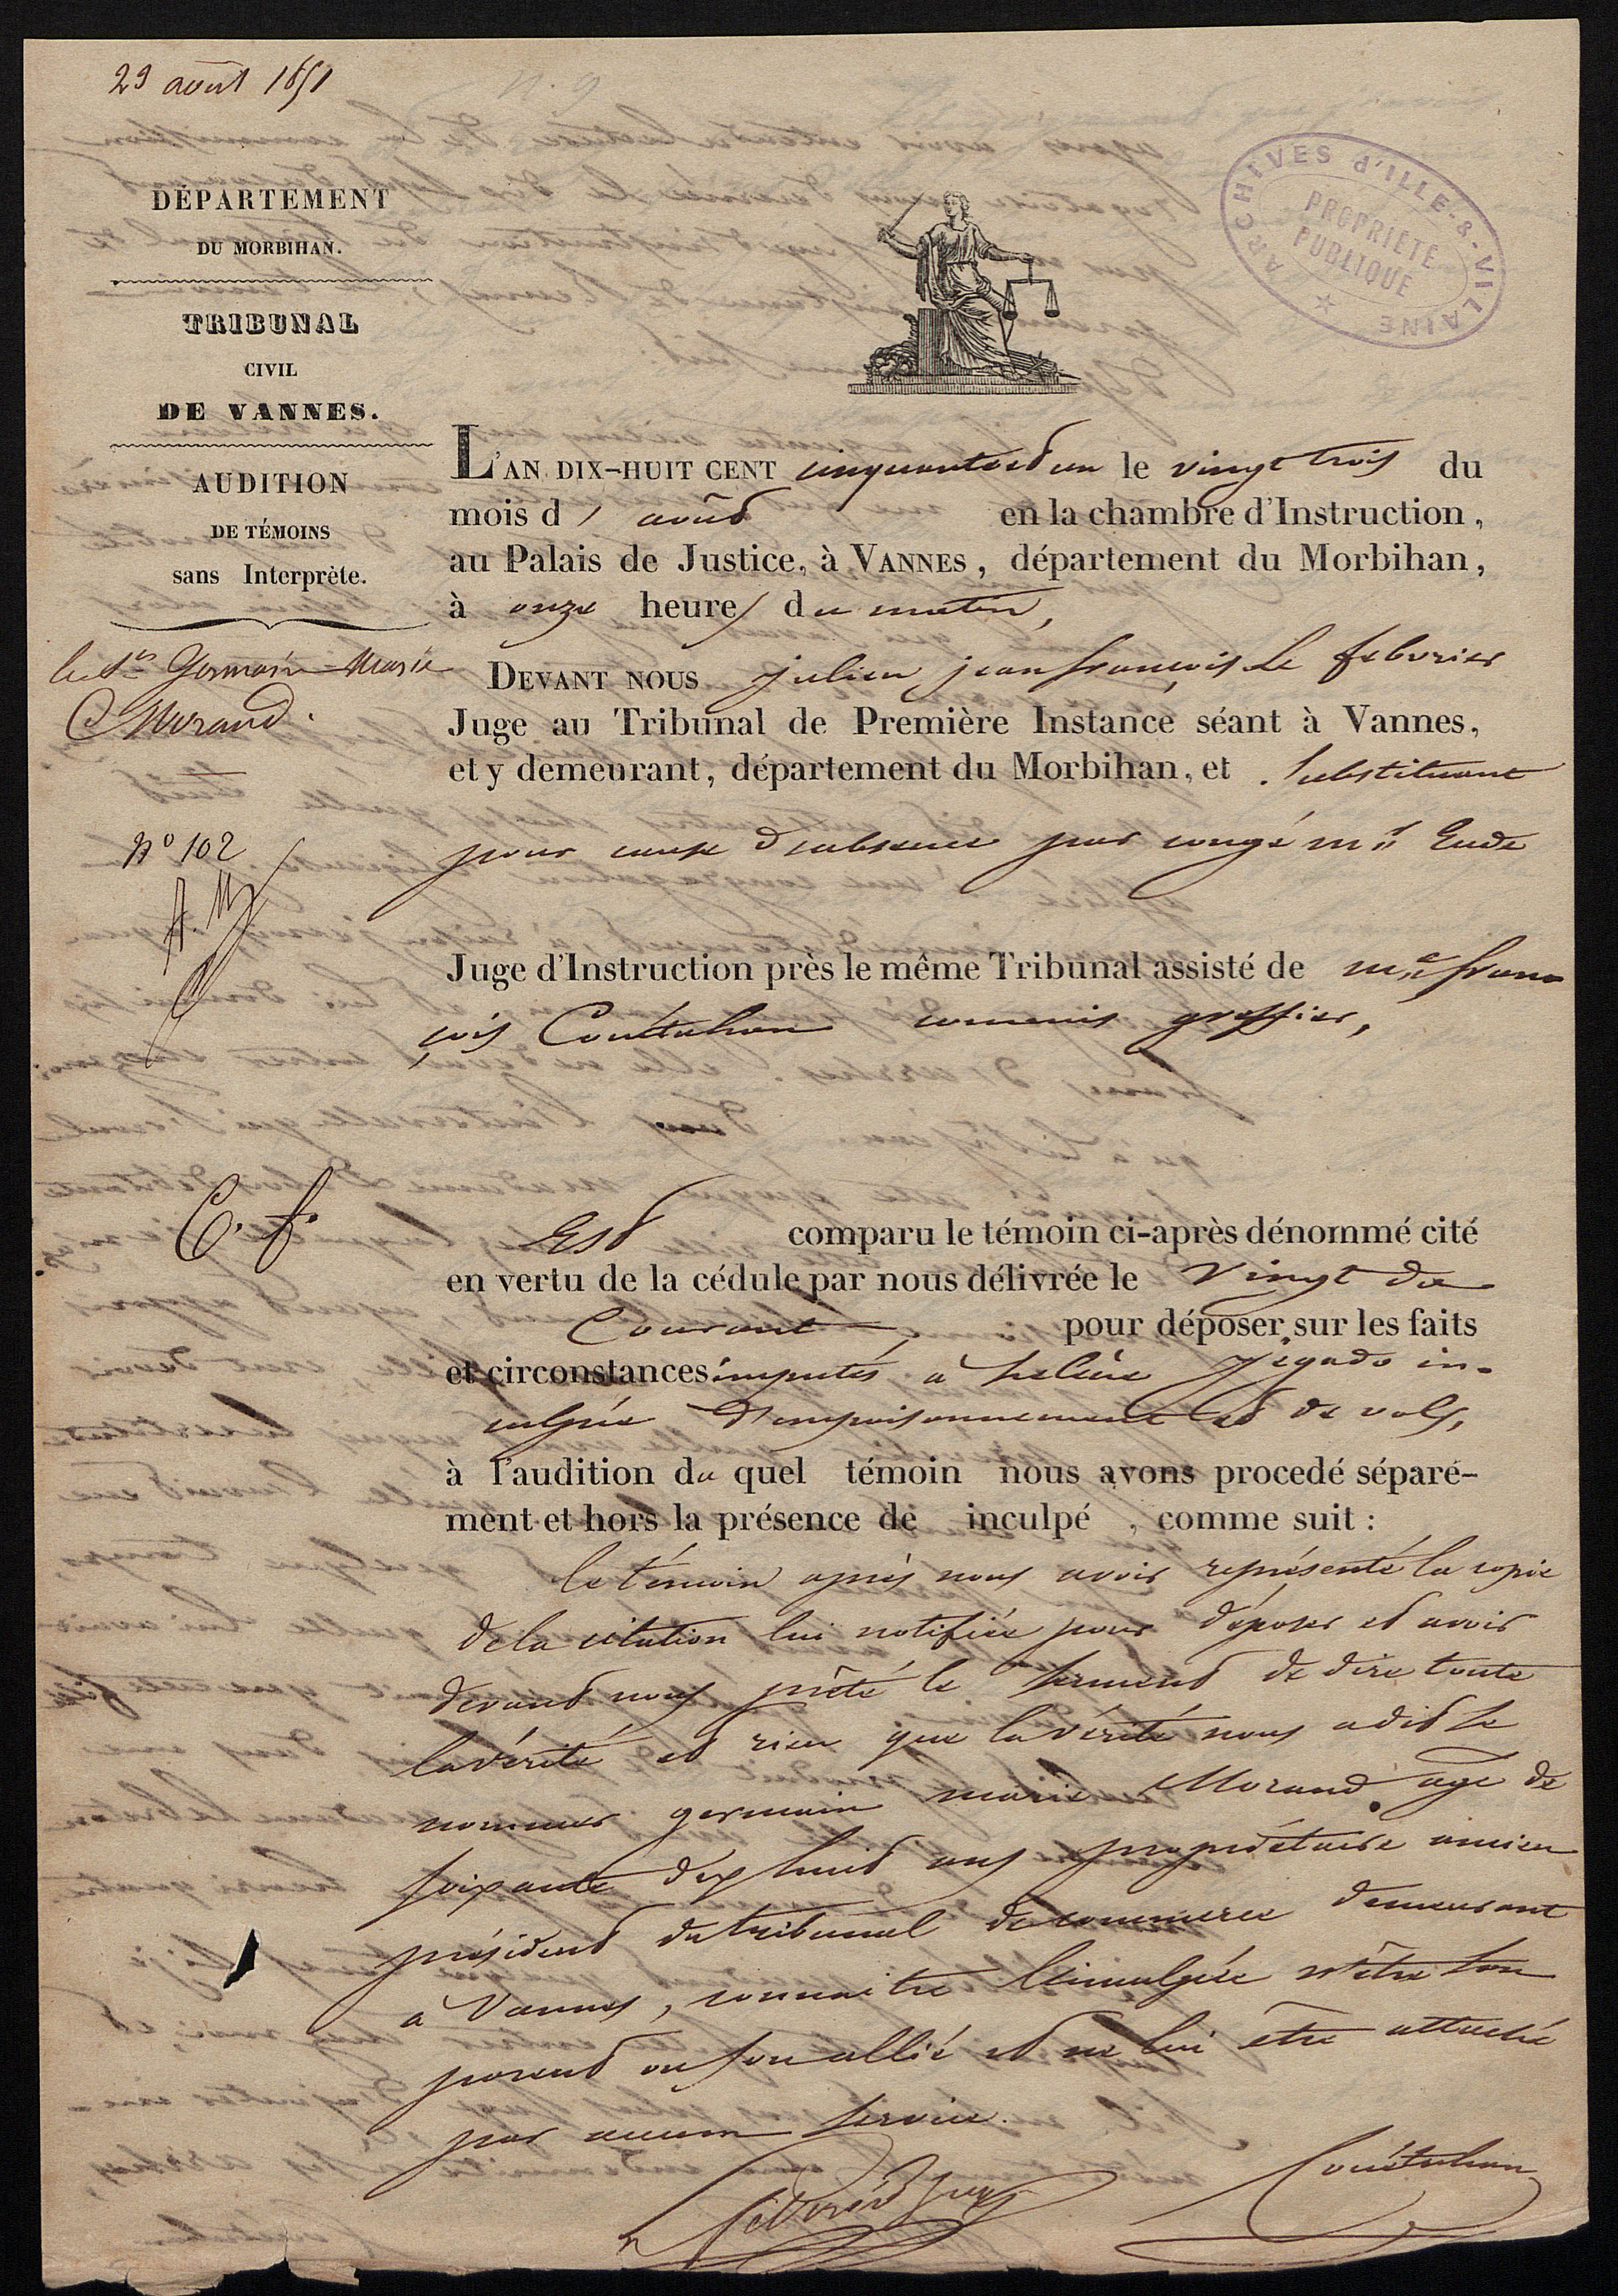 23 août 1851
ARCHIVES d'ILLE-&-VILAINE
PROPRIÉTÉ
PUBLIQUE
DÉPARTEMENT
DU MORBIHAN.
TRIBUNAL
CIVIL
DE VANNES.
AUDITION
DE TÉMOINS
sans Interprète.
Germain-Marie
Morand.
N° 102
L'AN DIX-HUIT CENT cinquante et un le vingt trois du
mois d' août en la chambre d'Instruction,
au Palais de Justice, à VANNES, département du Morbihan,
à onze heures du matin,
DEVANT NOUS julien jean françois Le febvrier
Juge au Tribunal de Première Instance séant à Vannes,
et y demeurant, département du Morbihan, et substituant
pour cause d'absence par congé mr Eude
Juge d'Instruction près le même Tribunal assisté de me fran
çois commis greffier,
Est comparu le témoin ci-après dénommé cité
en vertu de la cédule par nous délivrée le vingt du
Courant, pour déposer sur les faits
et circonstances imputés à helène Jégado in-
culpée d'empoisonnement et de vols,
à l'audition du quel témoin nous avons procedé séparé-
ment et hors la présence de inculpé, comme suit :
le témoin après nous avoir représenté la copie
de la citation lui notifiée pour déposer et avoir
devant nous prêté le serment de dire toute
la vérité et rien que la vérité nous a dit se
nommer germain marie Morand agé de
soixante dix huit ans propriétaire ancien
président du tribunal de commerce demeurant
à Vannes, connaitre l'inculpée n'être son
parent ou son allié et ne lui être attaché
par aucun service.